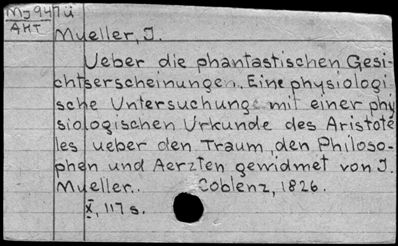 MJ 947 ü
AHT
Mueller, J.
Ueber die phantastischen Gesi-
chtserscheinungen. Eine physiologi
sche Untersuchung mit einer phy
siologischen Urkunde des Aristote
les ueber den Traum, den Philoso-
phen und Aerzten gewidmet von J.
Mueller. Coblenz, 1826.
X, 117 s.